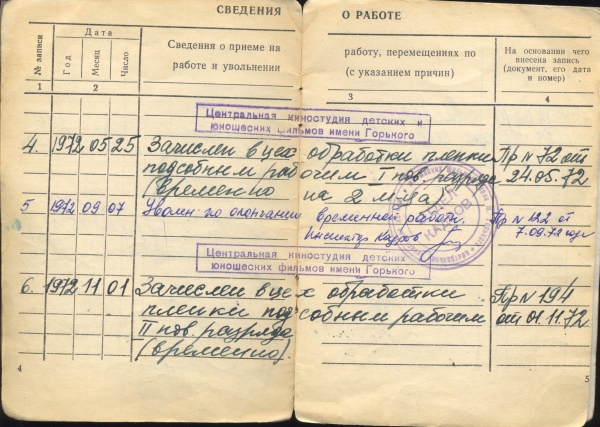 СВЕДЕНИЯ О РАБОТЕ
№ записи
Дата
Год
Месяц
Число
Сведения о приеме на работу, перемещениях по
работе и увольнении (с указанием причин)
На основании чего
внесена запись
(документ, его дата
и номер)
1 2 3 4
Центральная киностудия детских и
юношеских фильмов имени Горького
4. 1972 05 25 Зачислен в цех обработки пленки Пр N 72 от
подсобным рабочим I пов. разряда 24.05.72
(временно на 2 м-ца)
5 1972 09 07 Уволен по окончании временной работы. Пр N 122 от
Инспектор Кадров 7.09.72 года
Центральная киностудия детских
юношеских фильмов имени Горького
6. 1972 11 01 Зачислен в цех обработки Пр N 194
пленки подсобным рабочим от 01.11.72
II пов. разряда
(временно).
4
5